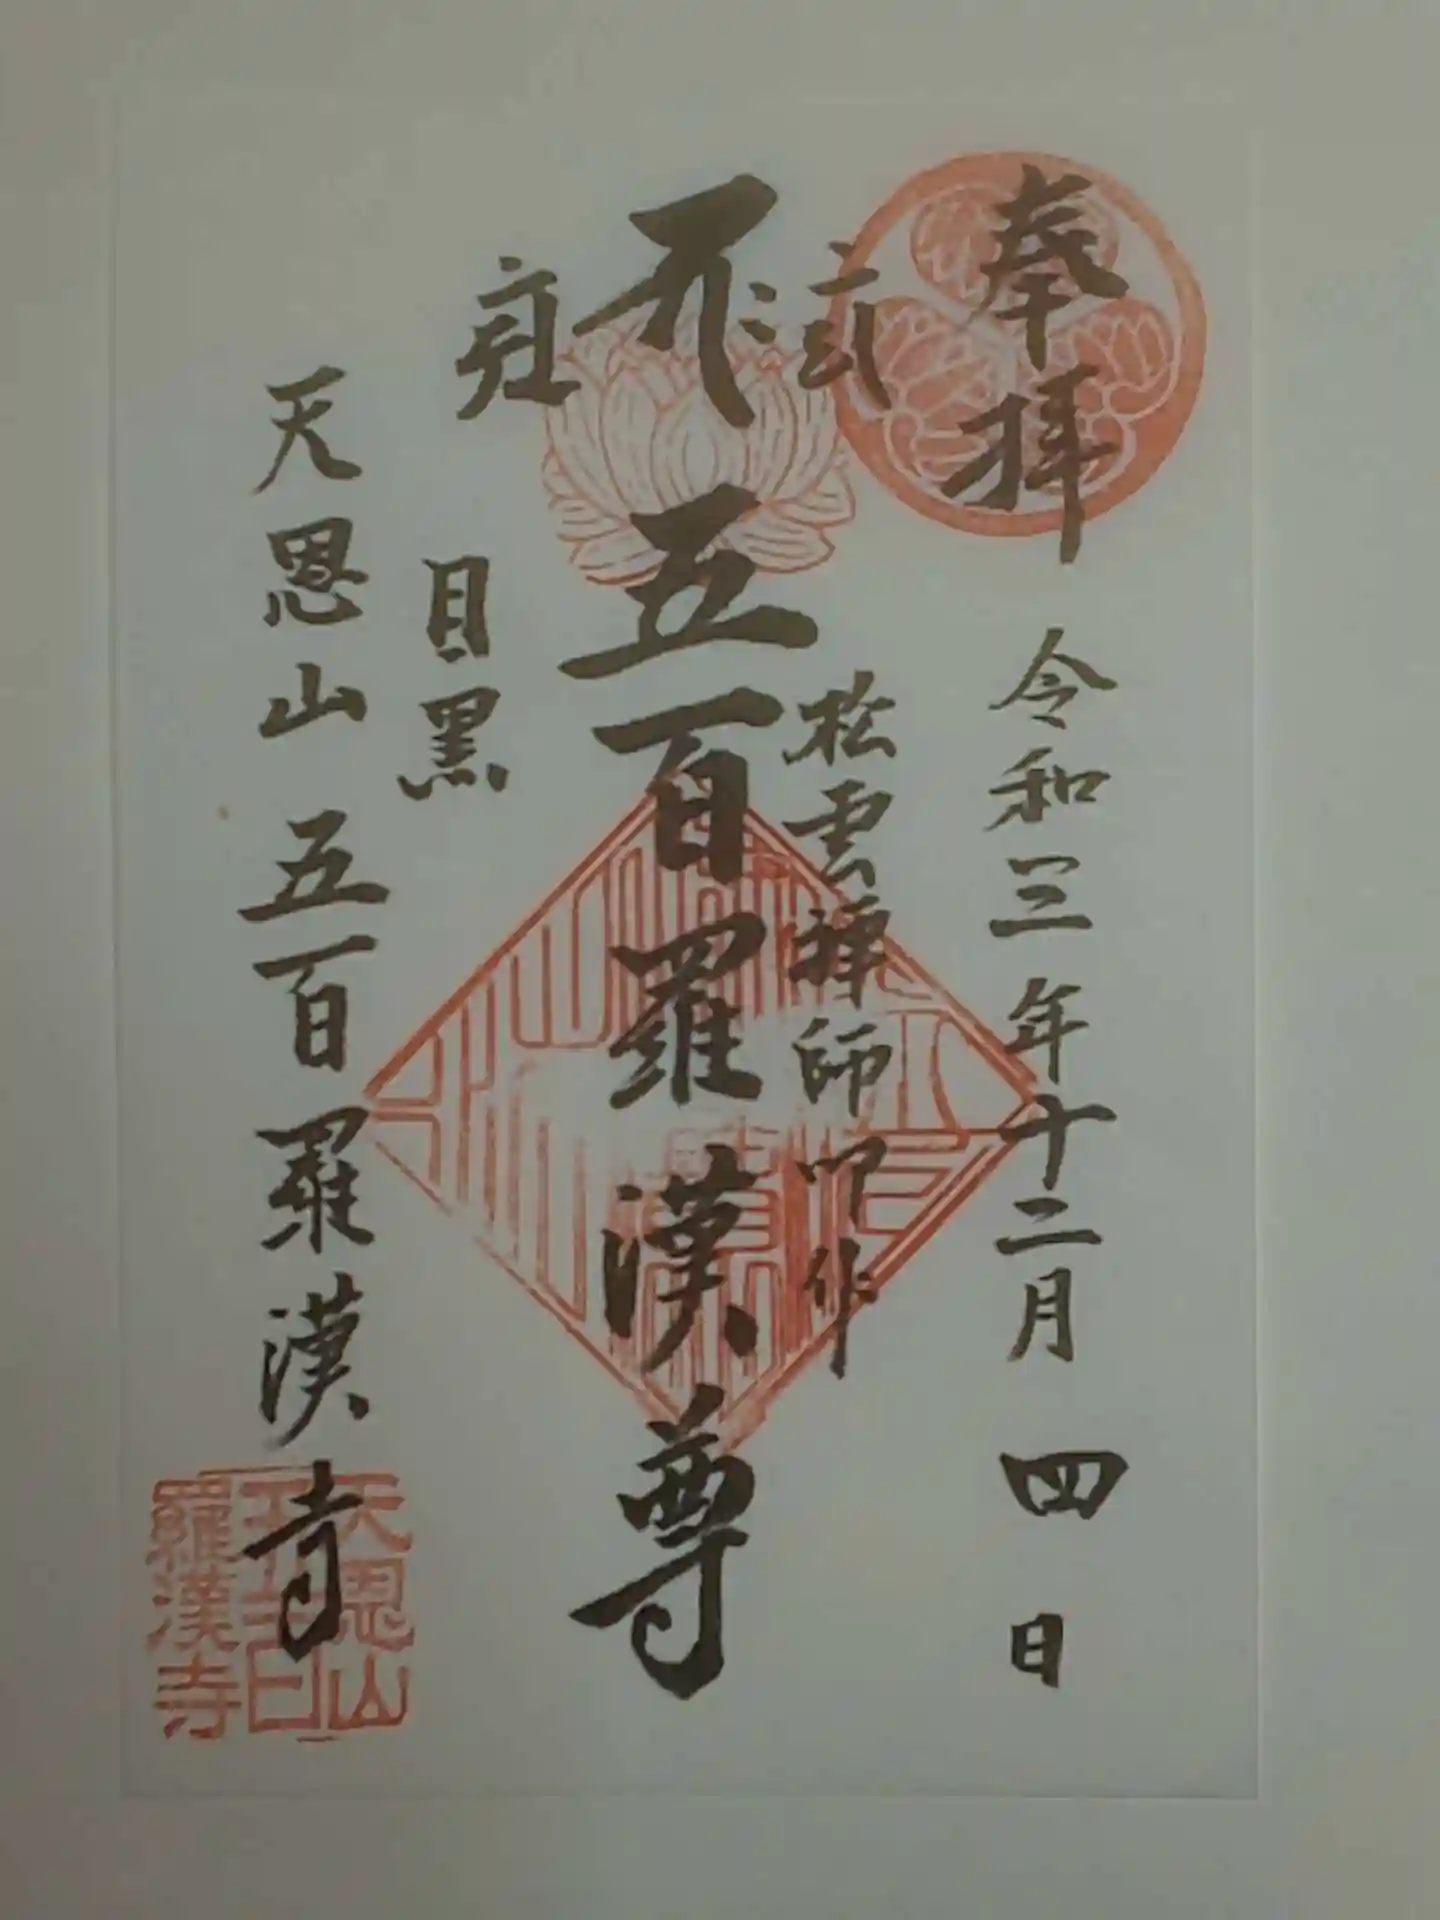 奉拝
令和三年十二月四日
松雲禅師 作
五百羅漢尊
目黒
天恩山 五百羅漢寺
天恩山
五百
羅漢寺